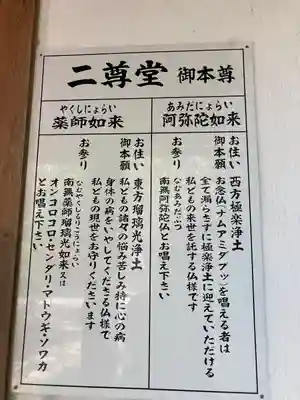 二尊堂 御本尊
あみだにょらい
阿弥陀如来
お住い 西方極楽浄土
御本願 お念仏(ナムアミダブッ)を唱える者は
全て漏らさずに極楽浄土に迎えていただける
私どもの来世を託する仏様です
なむあみだぶつ
お参り 南無阿弥陀仏とお唱え下さい
やくしにょらい
薬師如来
お住い 東方瑠璃光浄土
御本願 私どもの諸々の悩み苦しみ特に心の病
身体の病をいやしてくださる仏様で
私どもの現世をお守りくださいます
なむやくしるりこうにょらい
お参り 南無薬師瑠璃光如来又は
オンコロコロ・センダリ・マトウギ・ソワカ
とお唱え下さい